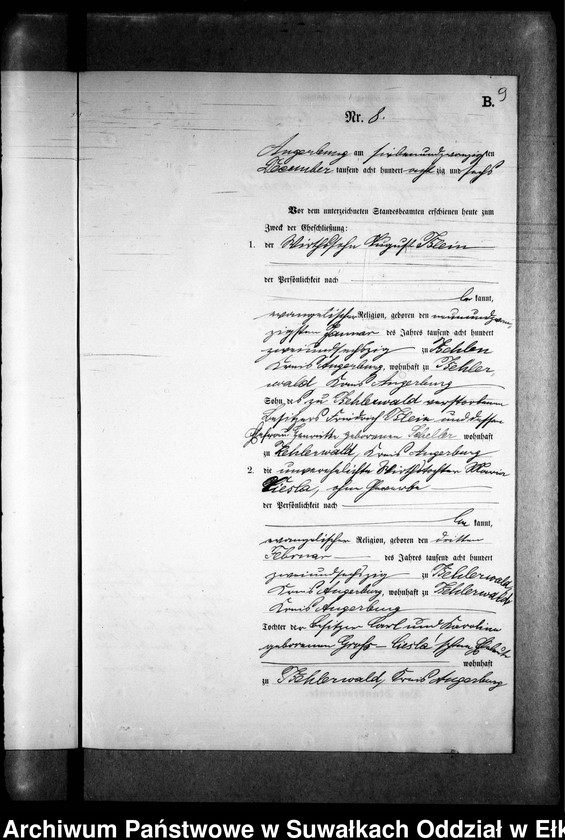 9
B.
Nr. 8.
Angerburg am siebenundzwanzigsten
Dezember tausend acht hundert acht zig und sechs
Vor dem unterzeichneten Standesbeamten erschienen heute zum
Zweck der Eheschließung:
1. der Wirthssohn August Klein
der Persönlichkeit nach
be kannt,
evangelischer Religion, geboren den neunundzwan
zigsten Januar des Jahres tausend acht hundert
zweiundsechszig zu
Kreis Angerburg, wohnhaft zu Kehler
wald Kreis Angerburg
Sohn des zu Kehlerwald verstorbenen
Besitzers Friedrich Klein und dessen
Ehefrau Henriette geborenen wohnhaft
zu Kehlerwald, Kreis Angerburg
2. die unverehelichte Wirthstochter
Ciesla, ohne Gewerbe
der Persönlichkeit nach
be kannt,
evangelischer Religion, geboren den dritten
Februar des Jahres tausend acht hundert
zweiundsechszig zu Kehlerwald,
Kreis Angerburg, wohnhaft zu Kehlerwald
Kreis Angerburg
Tochter der Besitzer Carl und Karoline
geborenen Groß-Ciesla'schen Eheleute
wohnhaft
zu Kehlerwald, Kreis Angerburg
Archiwum Państwowe w Suwałkach Oddział w Ełk